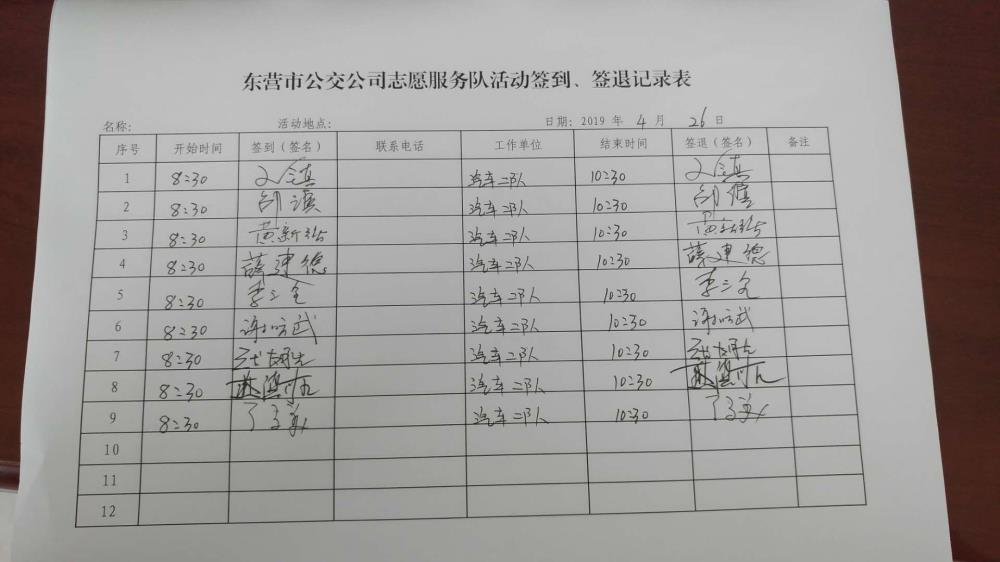 东营市公交公司志愿服务队活动签到、签退记录表
名称: 活动地点: 日期: 2019 年 4 月 26 日
序号 开始时间 签到（签名） 联系电话 工作单位 结束时间 签退（签名） 备注
1 8:30 汽车二队 10:30
2 8:30 汽车二队 10:30
3 8:30 黄新 汽车二队 10:30 黄新
4 8:30 薛建德 汽车二队 10:30 薛建德
5 8:30 李三全 汽车二队 10:30 李三全
6 8:30 武 汽车二队 10:30 武
7 8:30 汽车二队 10:30
8 8:30 汽车二队 10:30
9 8:30 汽车二队 10:30
10
11
12